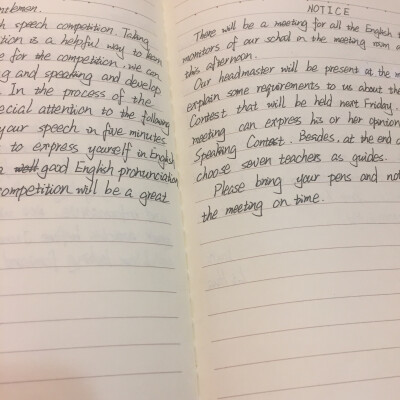 ntleman.
h speech competition. Taking
tion is a helpful way to learn
e for the competition. We can
g and speaking and develop
. In the process of the
ecial attention to the following
your speech in five minutes
to express yourself in English
good English pronunciation
competition will be a great
NOTICE
There will be a meeting for all the English
monitors of our school in the meeting room
this afternoon.
Our headmaster will be present at the m
explain some requirements to us about the
Contest that will be held next Friday.
meeting can express his or her opinion
Speaking Contest. Besides, at the end o
choose seven teachers as guides.
Please bring your pens and not
the meeting on time.